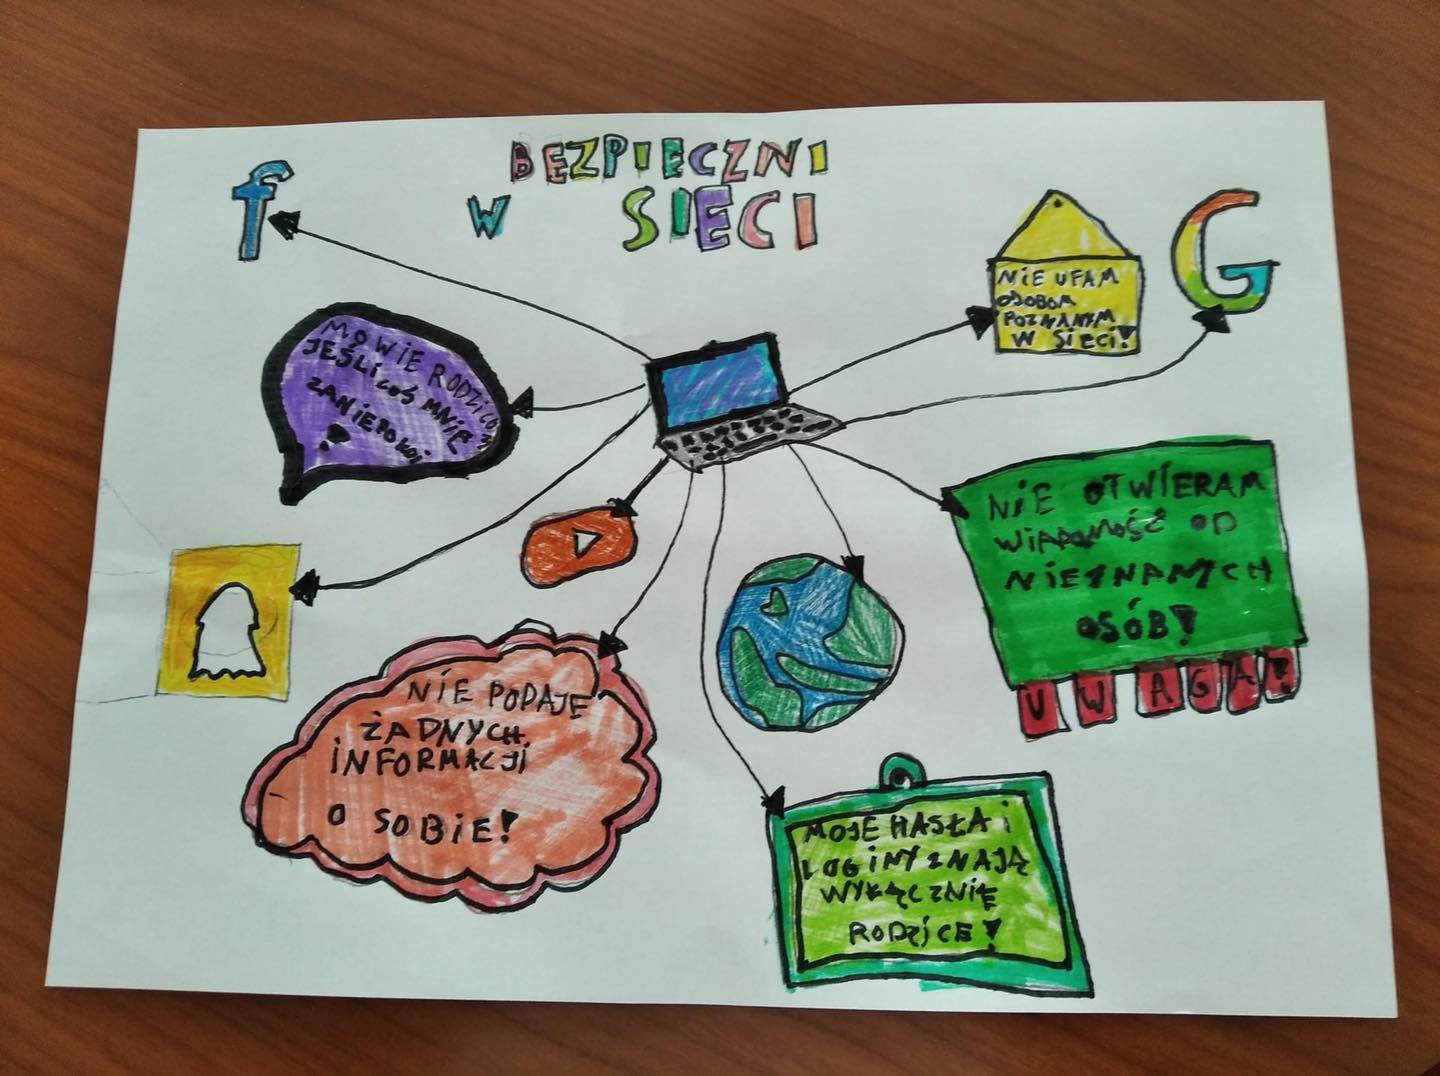 BEZPIECZNI
W SIECI
f
G
NIE UFAM
OSOBOM
POZNANYM
W SIECI!
MÓWIE RODZICOM
JEŚLI COŚ MNIE
ZANIEPOKOI
!
NIE OTWIERAM
WIADOMOŚĆ OD
NIEZNANYCH
OSÓB!
UWAGA!
NIE PODAJĘ
ŻADNYCH
INFORMACJI
O SOBIE!
MOJE HASŁA i
LOGINY ZNAJĄ
WYŁĄCZNIE
RODZICE!